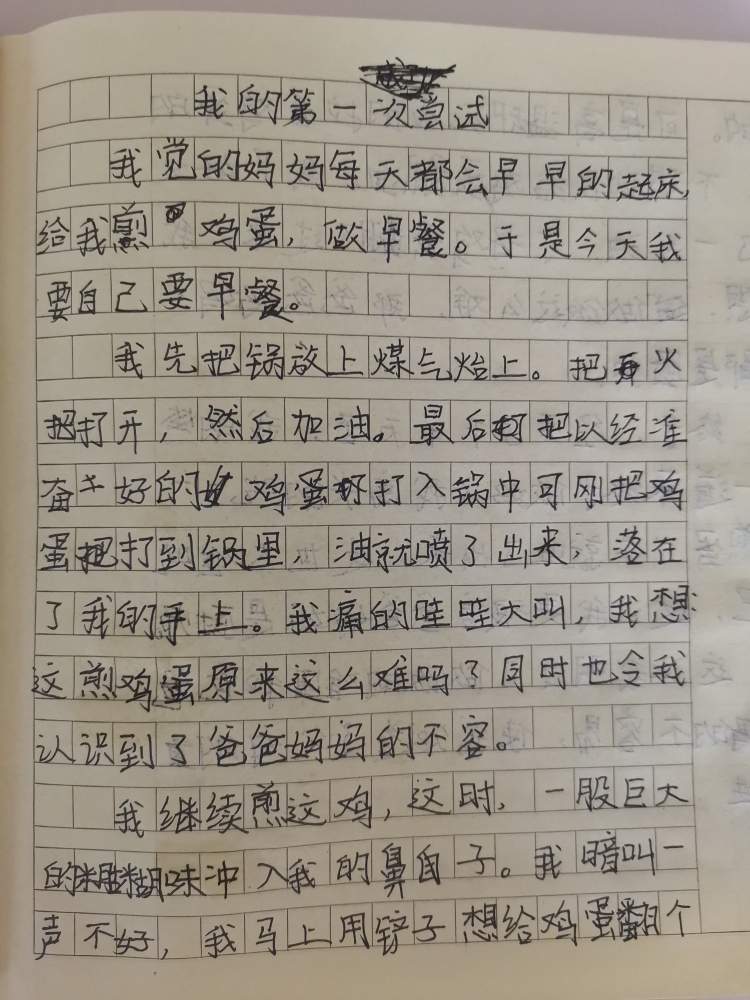 我的第一次尝试
我觉的妈妈每天都会早早的起床,
给我煎鸡蛋，做早餐。于是今天我
要自己要早餐。
我先把锅放上煤气炲上。把火
把打开，然后加油。最后把以经准
奋好的鸡蛋打入锅中可刚把鸡
蛋打到锅里，油就喷了出来，落在
了我的手上。我痛的哇哇大叫，我想
这煎鸡蛋原来这么难吗了同时也令我
认识到了爸爸妈妈的不容。
我继续煎这鸡，这时，一股巨大
的糊味冲入我的鼻子。我暗叫一
声不好，我马上用铲子想给鸡蛋翻个